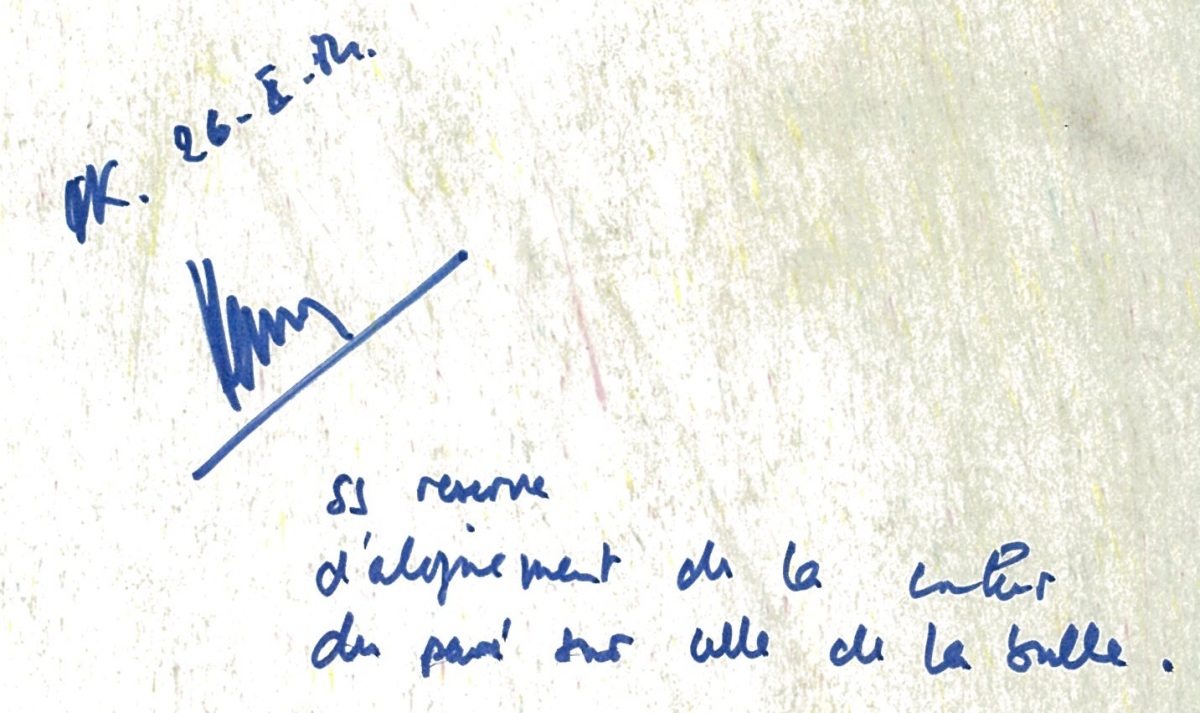 OK. 26-II-
ss reserve
d'alignement de la couleur
du pavé sur celle de la bulle.